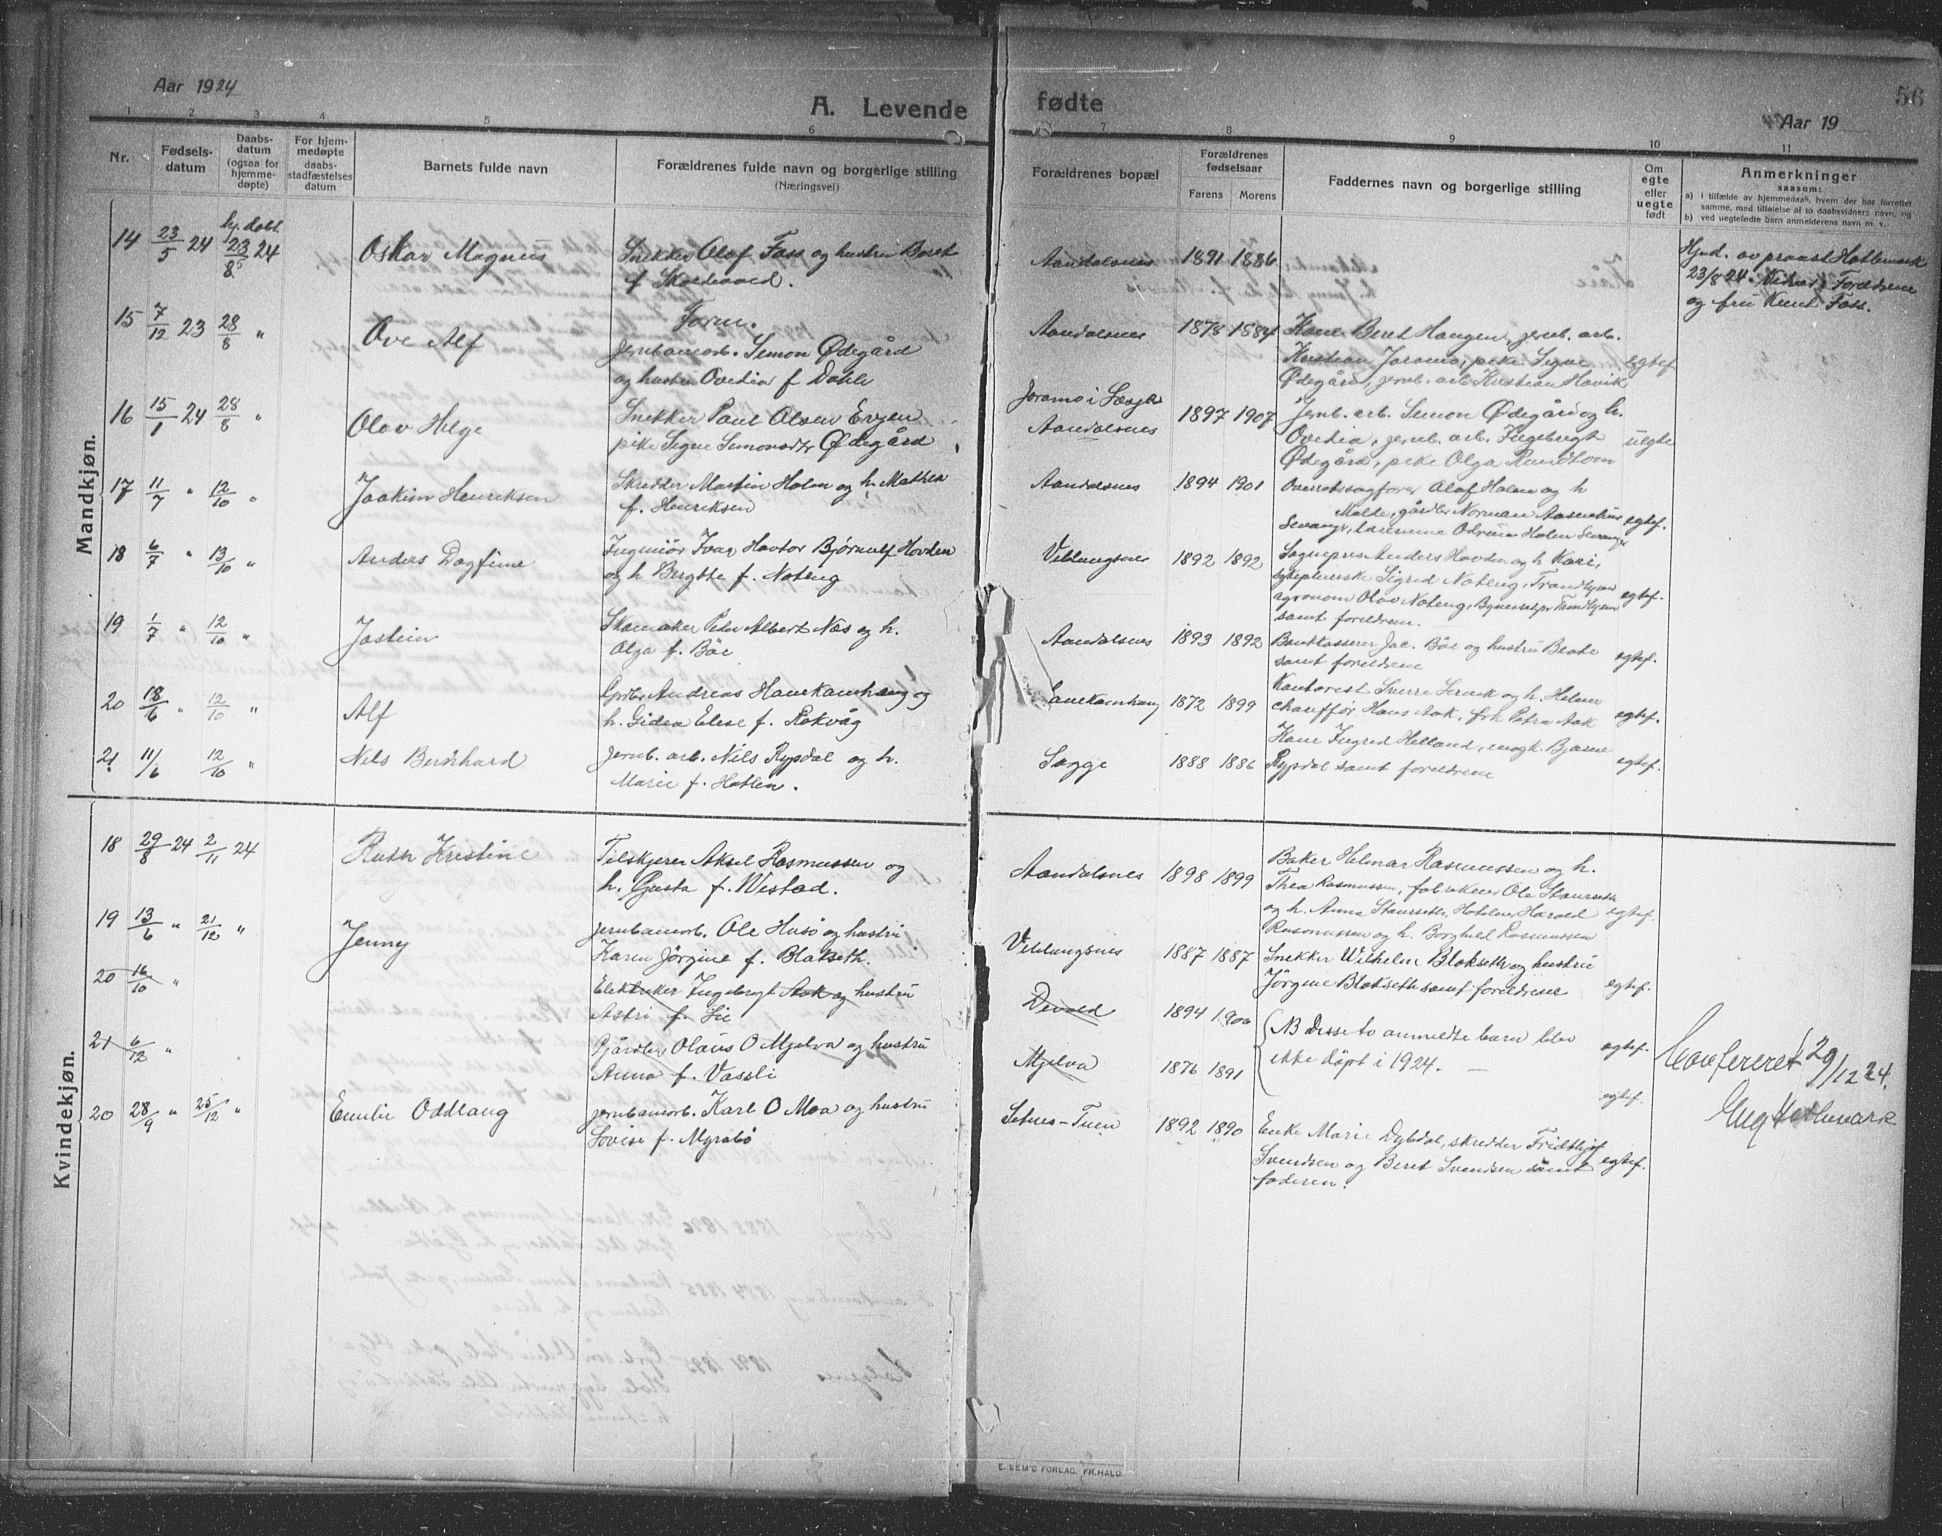 Aar 1924
A. Levende fødte
56
Aar 19
1 2 3 4 5 6 7 8 9 10 11
Nr.
Fødsels-
datum
Daabs-
datum
(ogsaa for
hjemme-
døpte)
For hjem-
medøpte
daabs-
stadfæstelses
datum
Barnets fulde navn
Forældrenes fulde navn og borgerlige stilling
(Næringsvei)
Forældrenes bopæl
Forældrenes
fødselsaar
Farens Morens
Faddernes navn og borgerlige stilling
Om
egte
eller
uegte
født
Anmerkninger
saasom:
a) i tilfælde av hjemmedaab, hvem der har forrettet
samme, med tilføielse af to daabsvidners navn, og
b) ved uegtefødte barn anmelderens navn m. v.
Mandkjøn.
14 23/5 24 hj. døbt 23/8 24 Oskar Magnus
Snekker Olaf Fass og hustru Beret
f.
Aandalsnes 1891 1886
Hjd. av proast Hattemark
23/8 24. Vidner: Forældrene
og fru Knut Fass.
15 7/12 23 28/8 " Ove Alf
Jernbanearb. Simon Ødegård
og hustru Ovedia f. Dahle
Aandalsnes 1878 1884
Kone Beret Haugen, jernb. arb.
Kristian Joramo, pike Signe
Ødegård, jernb. arb Kristian Hovik
egtef
16 15/1 24 28/8 " Olav Helge
Snekker Paul Olsen Evjen
pike Signe Simonsdtr Ødegård
Joramo i Læsja
Aandalsnes 1897 1907
Jernb. arb. Simon Ødegård og h.
Ovedia, jernb. arb. Ingebrigt
Ødegård, pike Olga
uegte
17 11/7 " 12/10 " Joakim Henriksen
Skredder Martin Holm og h. Mathea
f. Henriksen
Aandalsnes 1894 1901
Overretssagfører Olaf Holm og h
Malde, gårdbr. Norman
Odrun Holm
egtef.
18 6/7 " 13/10 " Anders Dagfinn
Ingeniør Ivar Havtor Bjørnulf Hovden
og h Birgitte f. Noteng
Veblungsnes 1892 1892
Sogneprest Anders Hovden og h Kari,
sykepleierske Sigrid Noteng, Trondhjem
agronom Olav Noteng, Byneset pr Trondhjem
samt foreldrene.
egtef.
19 1/7 " 12/10 " Jostein
Skomaker Peder Albert Næs og h.
Olga f. Böe
Aandalsnes 1893 1892
Bankkasserer Jac. Böe og hustru Beate
samt foreldrene
egtef.
20 18/6 " 12/10 " Alf
Gbr. Andreas Hanekamhaug og
h. Gidea Elise f. Rokvåg
Hanekamhaug 1872 1899
Kontorist Sverre Servik og h. Helene
chauffør Hans Aak, frk Petra Aak
egtef.
21 11/6 12/10 " Nils Bernhard
Jernb. arb. Nils Rypdal og h.
Marie f. Hatlen.
Sogge 1888 1886
Kone Ingrid Helland, ungk. Bjarne
Rypdal samt foreldrene
egtef.
Kvindekjøn.
18 29/8 24 2/11 24 Ruth Kristine
Tilskjerer Aksel Rasmussen og
h. Gusta f. Wistad.
Aandalsnes 1898 1899
Baker Hilmar Rasmussen og h.
Thea Rasmussen, fabrikeier Ole Stavseth
og h. Anna Stavseth, Harald
Rasmussen og h. Borghild Rasmussen
egtef.
19 13/6 " 21/12 " Jenny
Jernbanearb. Ole Husö og hustru
Karen Jörgine f. Blakseth.
Veblungsnes 1887 1887
Snekker Wilhelm Blakseth og hustru
Jörgine Blakseth samt foreldrene
egtef.
20 16/10 "
Elektriker Ingebrigt Aak og hustru
Astri f. Lie
Devold 1894 1900
NB Disse to anmeldte barn blev
ikke döpt i 1924.
egtef.
21 6/12 "
Gårdbr. Olaus O Mjelva og hustru
Anna f. Vassli
Mjelva 1876 1891
egtef.
20 28/9 " 25/12 " Emilie Oddlaug
Jernbanearb. Karl O Moa og hustru
Lovise f. Myrabö
Setnes-Tuen 1892 1890
Enke Marie Dybdal, skredder Fridthjof
Svendsen og Beret Svendsen samt
faderen.
egtef.
Confereret 29/12 24.
E. SEM'S FORLAG, FR.HALD.